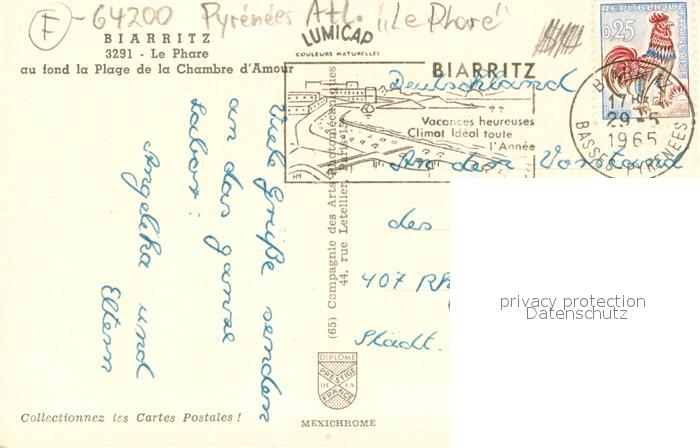 F - 64200 Pyrénées Atl. "Le Phare"
BIARRITZ
3291 - Le Phare
au fond la Plage de la Chambre d'Amour
LUMICAP
COULEURS NATURELLES
BIARRITZ
Vacances heureuses
Climat Idéal toute
l'Année
HM
0,25
REPUBLIQUE FRANCAISE
17H
29-5
1965
BASSES PYRENEES
Deutschland
An den Vorstand
des
407 Rh
Städt.
Viele Grüße senden
an das ganze
Labor:
Angelika und
Eltern
(65) Compagnie des Arts Photomécaniques
44, rue Letellier, Paris-15
DIPLOME
PRESTIGE
DE LA
FRANCE
MEXICHROME
Collectionnez les Cartes Postales !
privacy protection
Datenschutz